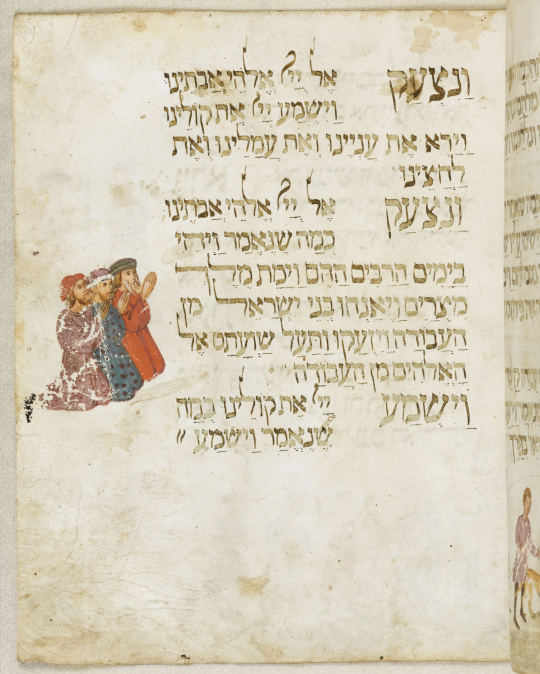 ונצעק אל יי אלהי אבתינו
וישמע יי את קולינו
וירא את עניינו ואת עמלינו ואת
לחצינו
ונצעק אל יי אלהי אבתינו
כמה שנאמר ויהי
בימים הרבים ההם וימת מלך
מצרים ויאנחו בני ישראל מן
העבודה ויזעקו ותעל שועתם אל
האלהים מן העבודה
וישמע יי את קולינו כמה
שנאמר וישמע